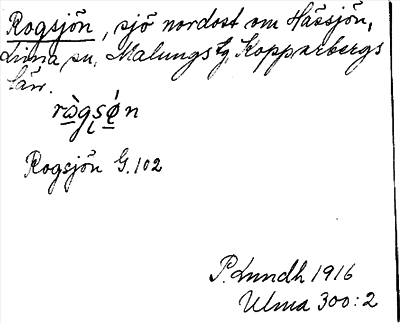 Rogsjön, sjö nordost om Hässjön,
Lima sn, Malungs tg Kopparbergs
län.
ràgsǿn
Rogsjön G.102
P. Lundh 1916
Ulma 300:2